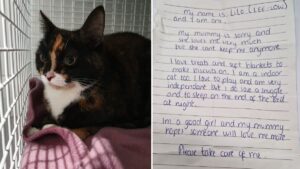 my name is Lilo (LEE-LOW)
and I am one.
My mummy is sorry and
she loves me very much
but she cant keep me anymore.
I love treats and soft blankets to
make biscuits on. I am a indoor
cat too. I love to play and am very
independant but I do like a snuggle
and to sleep on the end of the bed
at night.
Im a good girl and my mummy
hopes someone will love me more
Please take care of me.